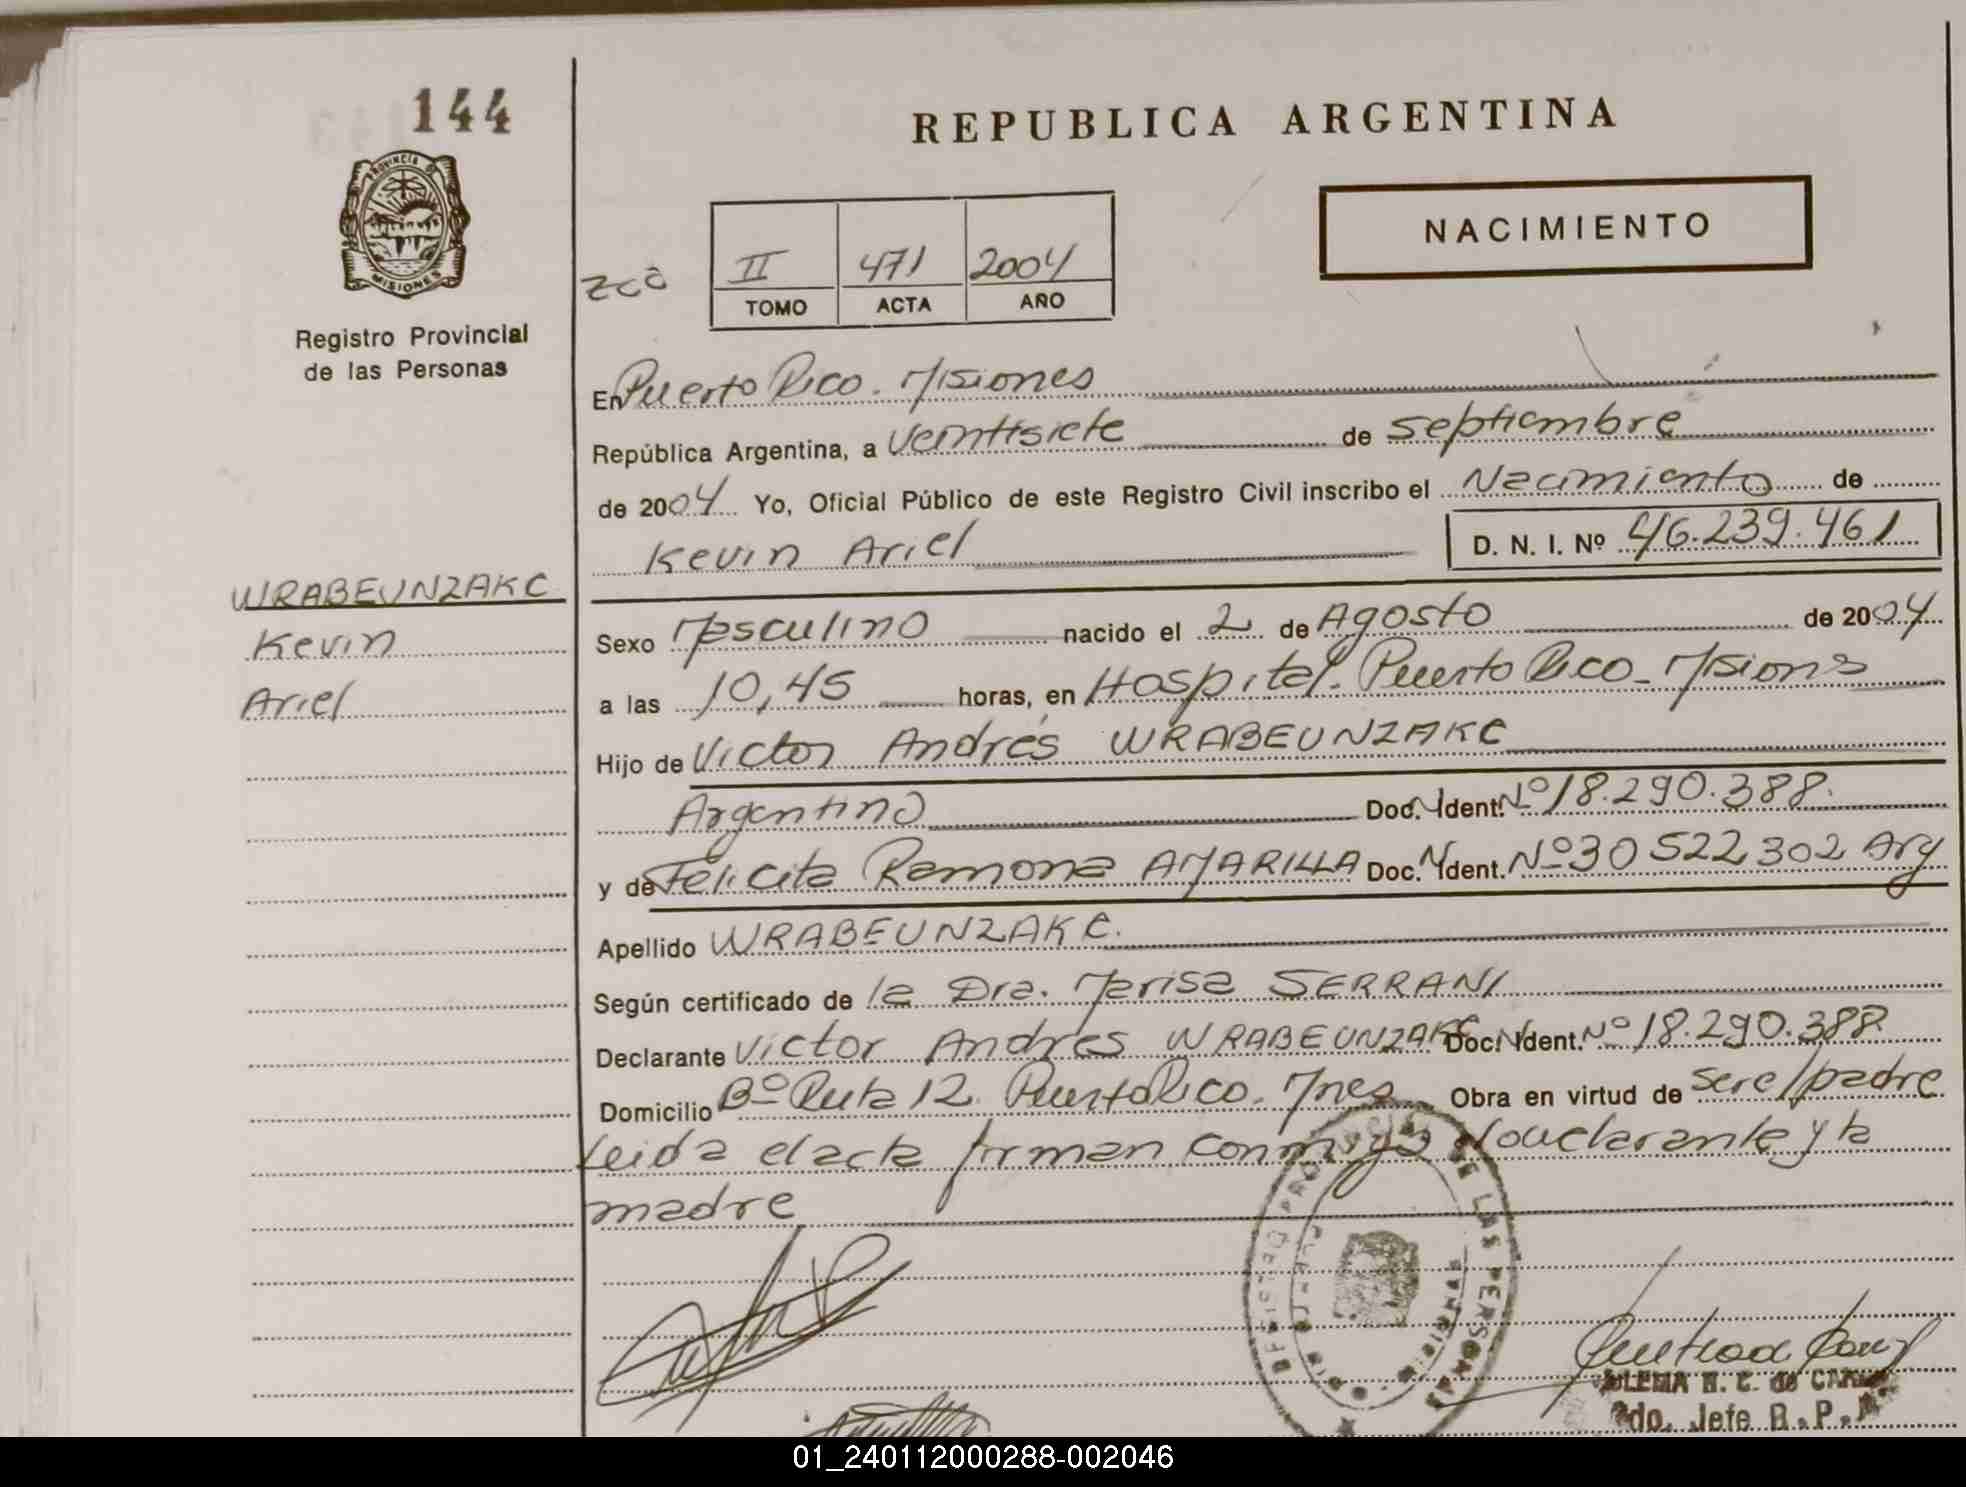 144
REPUBLICA ARGENTINA
PROVINCIA DE
MISIONES
NACIMIENTO
II 471 2004
TOMO ACTA AÑO
Registro Provincial
de las Personas
En Puerto Rico. Misiones
República Argentina, a veintisiete de septiembre
de 2004 Yo, Oficial Público de este Registro Civil inscribo el Nacimiento de
Kevin Ariel D. N. I. Nº 46.239.461
WRABEUNZAKC
Kevin
Ariel
Sexo Masculino nacido el 2 de Agosto de 2004
a las 10,45 horas, en Hospital. Puerto Rico - Misions
Hijo de Victor Andrés WRABEUNZAKC
Argentino Doc. Ident. Nº 18.290.388.
y de Felicita Ramona AMARILLA Doc. Ident. Nº 30 522 302 Arg
Apellido WRABEUNZAKC.
Según certificado de la Dra. Marisa SERRANI
Declarante Victor Andres WRABEUNZAKC Doc. Ident. Nº 18.290.388
Domicilio Bº Ruta 12. Puerto Rico. Mnes Obra en virtud de ser el padre
Leida el acta firman conmigo el declarante y la
madre
REGISTRO PROVINCIAL DE LAS PERSONAS
Jefe R.P.P.
01_240112000288-002046